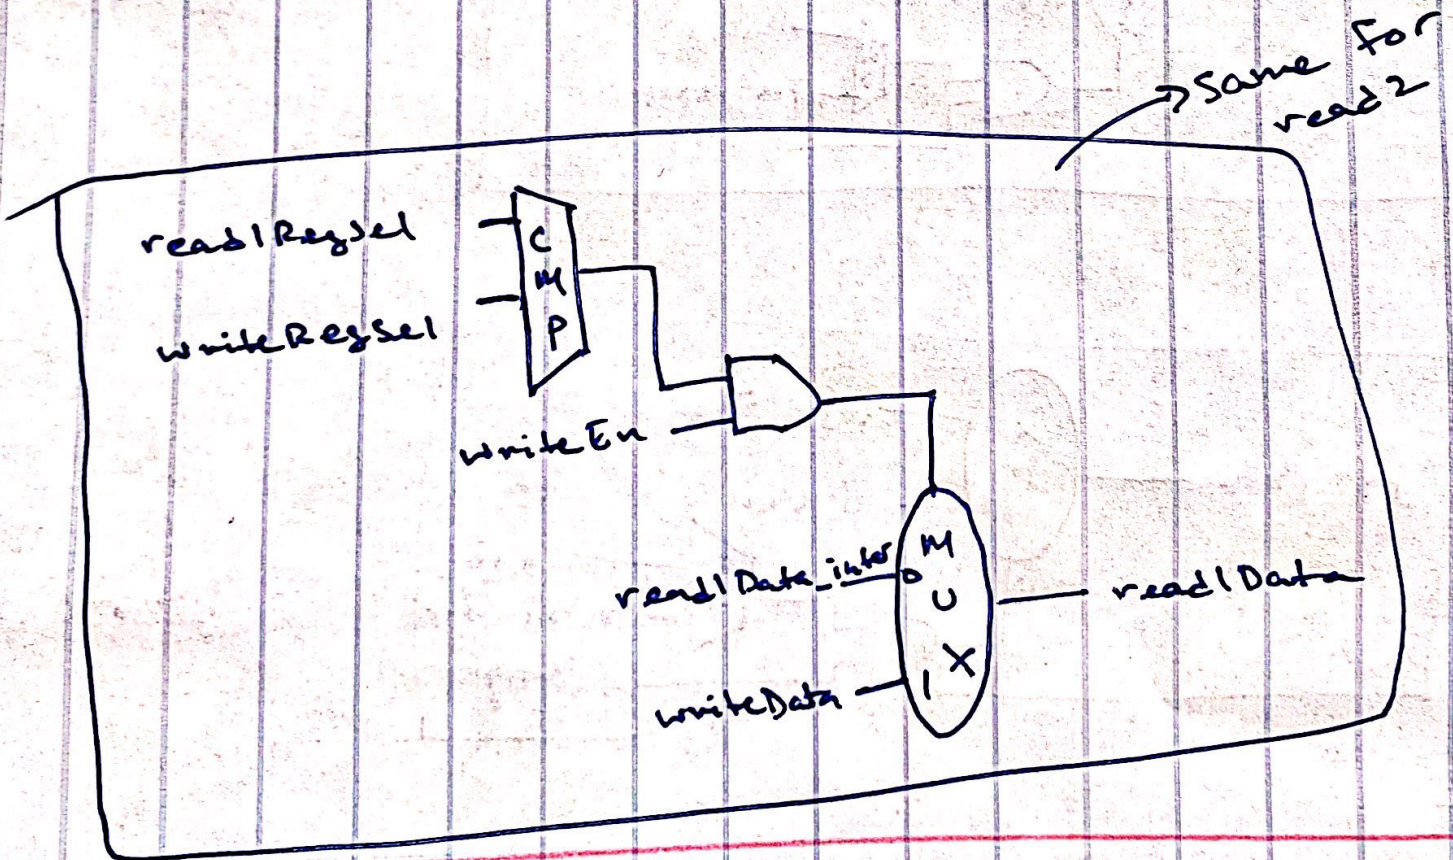 Same for
read2
read1RegSel
writeRegSel
C
M
P
writeEn
read1Data_inter
0
M
U
X
1
writeData
read1Data